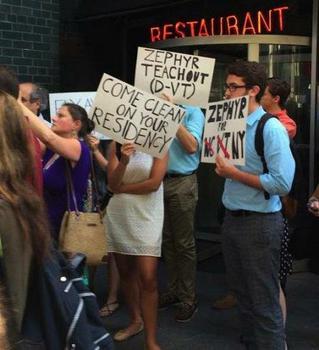 RESTAURANT
ZEPHYR
TEACHOUT
(D-VT)
COME CLEAN
ON YOUR
RESIDENCY
ZEPHYR
FOR
NY